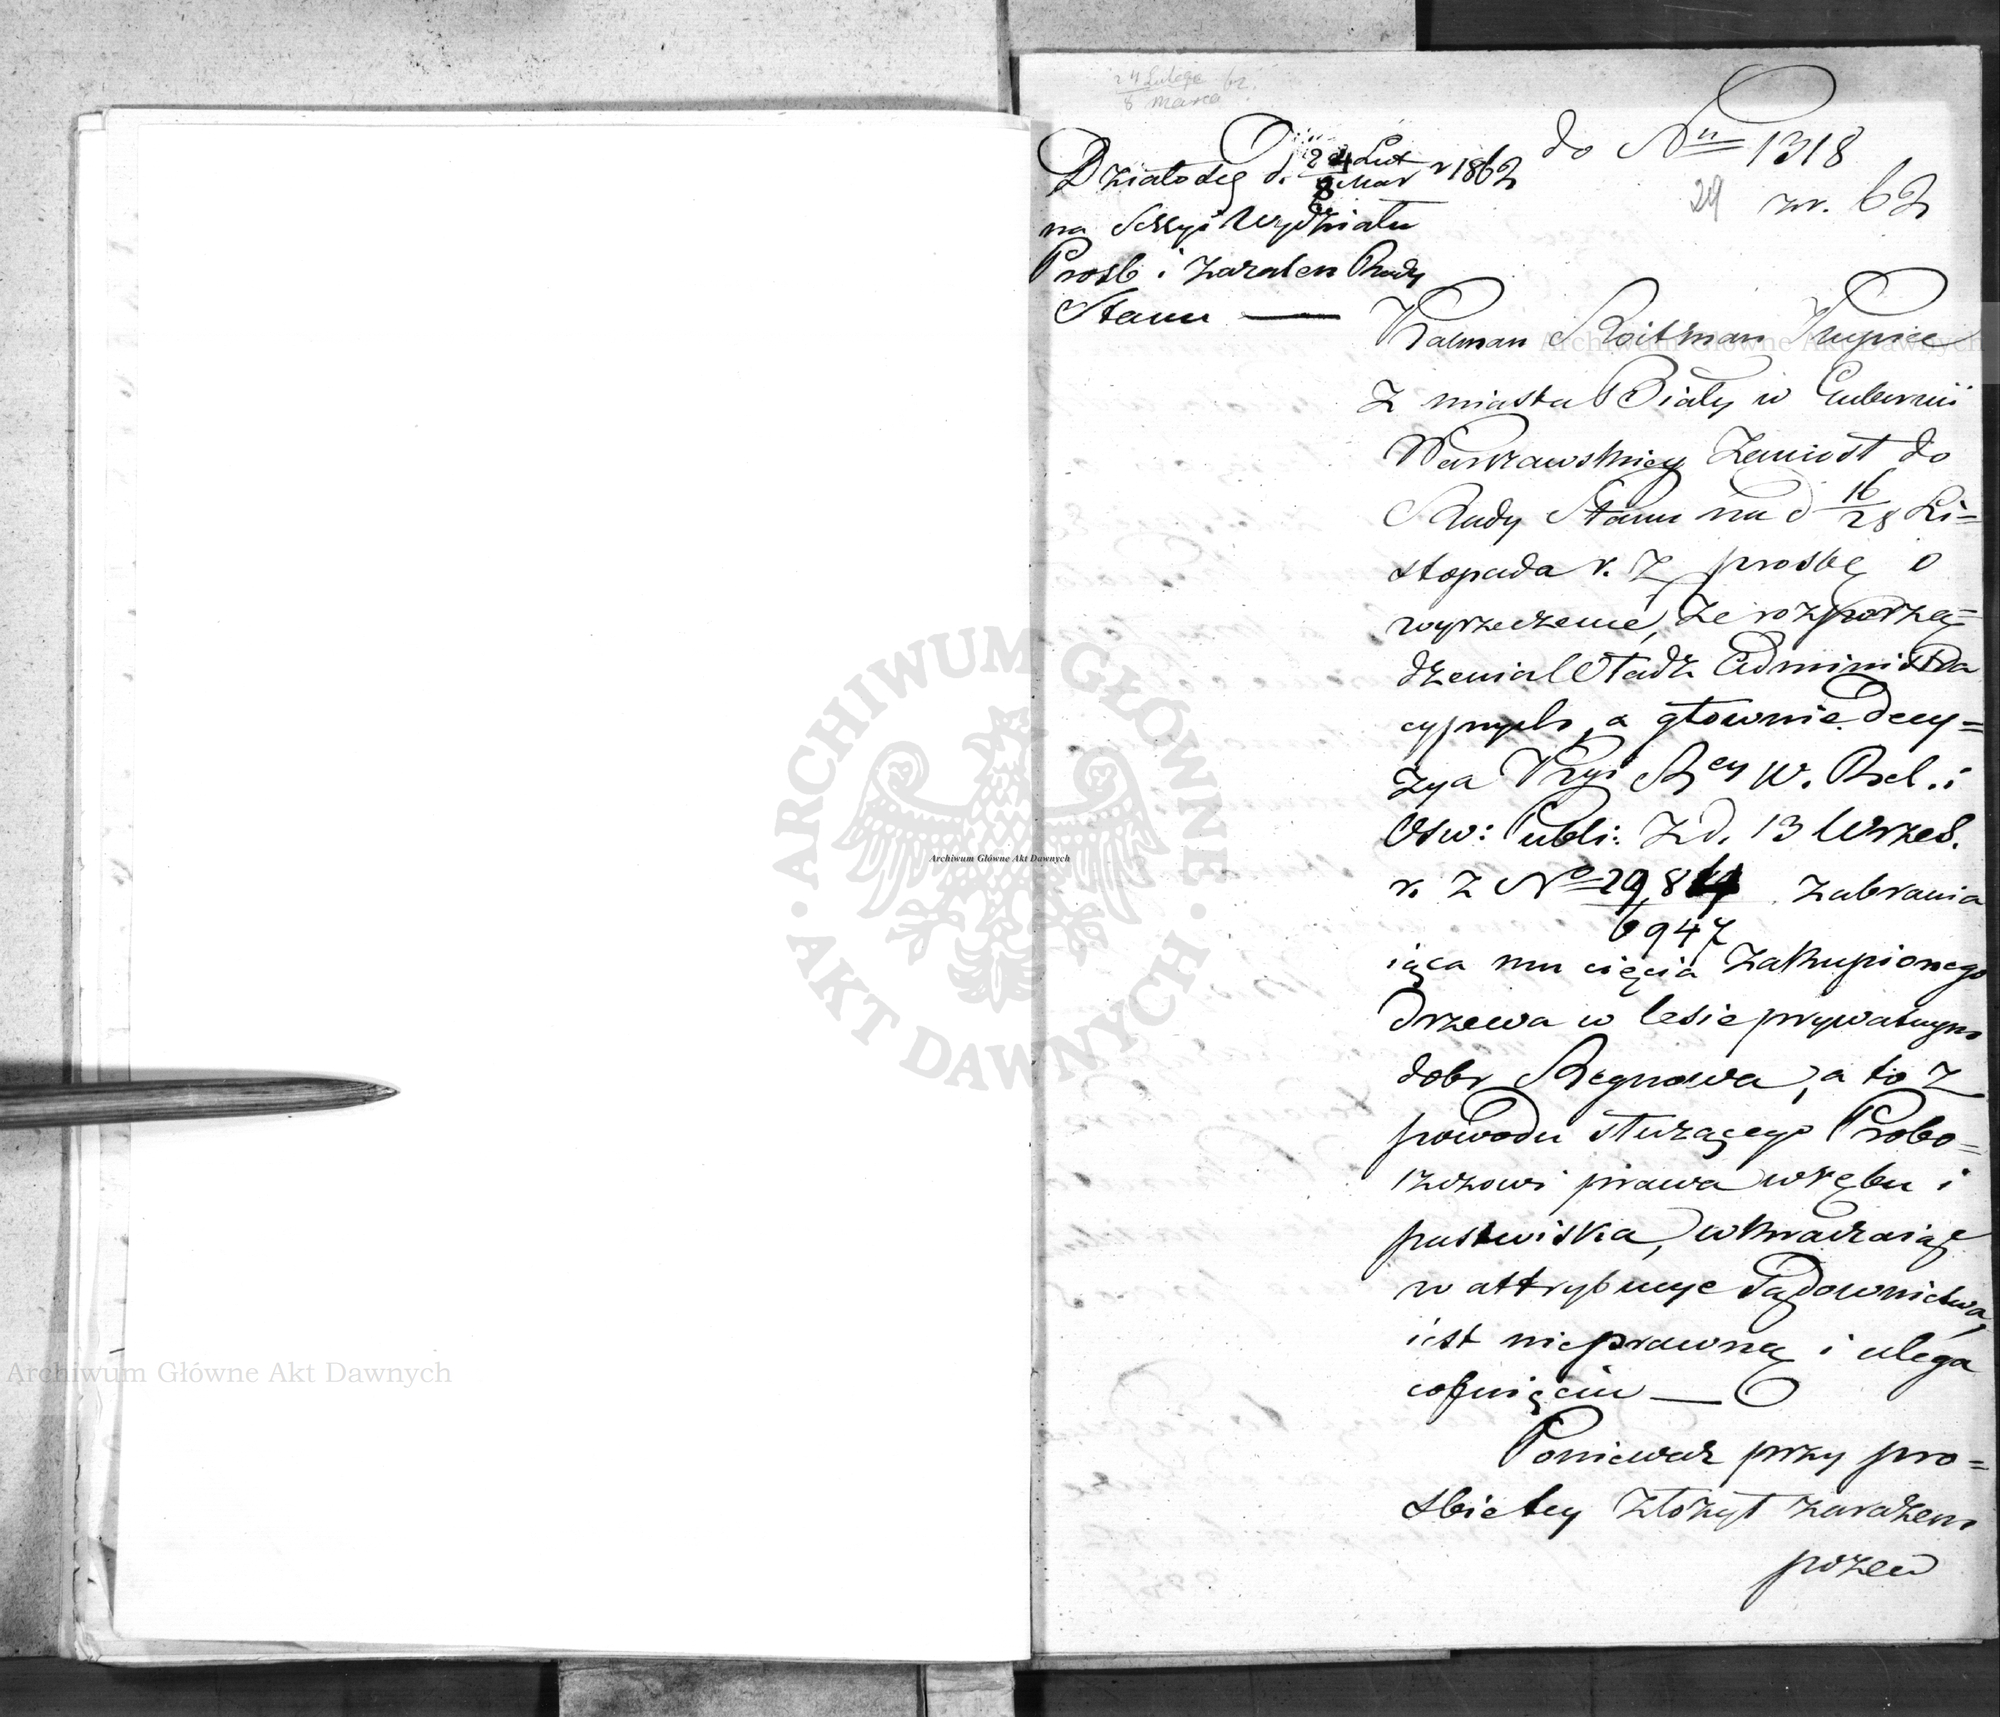 24 Lutego 62.
8 Marca
Działo się d. 24 Lut r 1862
8 Mar
na Sessyi Wydziału
Prosb i Zażaleń Rady
Stanu —
do Nru 1318
29 zr. 62
Kalman Roitman Kupiec
z miasta Biały w Gubernii
Warszawskiey zaniosł do
Rady Stanu na d 16/28 Li=
stopada r. z prosbę o
wyrzeczenie, że rozporzą=
dzenia Władz Administra
cyjnych, a głownie decy=
zya Kkyi Rey W. Rel. i
Osw: Publi: z d. 13 Wrześ.
r. z No 29,814 zabrania
6947
iąca mu cięcia zakupionego
drzewa w lesie prywatnym
dobr Regnowa, a to z
powodu służącego Probo=
szczowi prawa wrębu i
pastwiska, wkraczaiąc
w attrybucye Sądownictwa,
iest nieprawną i ulega
cofnięciu —
Ponieważ przy pro=
sbie tey złożył zarazem
pozew
Archiwum Główne Akt Dawnych
ARCHIWUM GŁÓWNE
AKT DAWNYCH
Archiwum Główne Akt Dawnych
Archiwum Główne Akt Dawnych